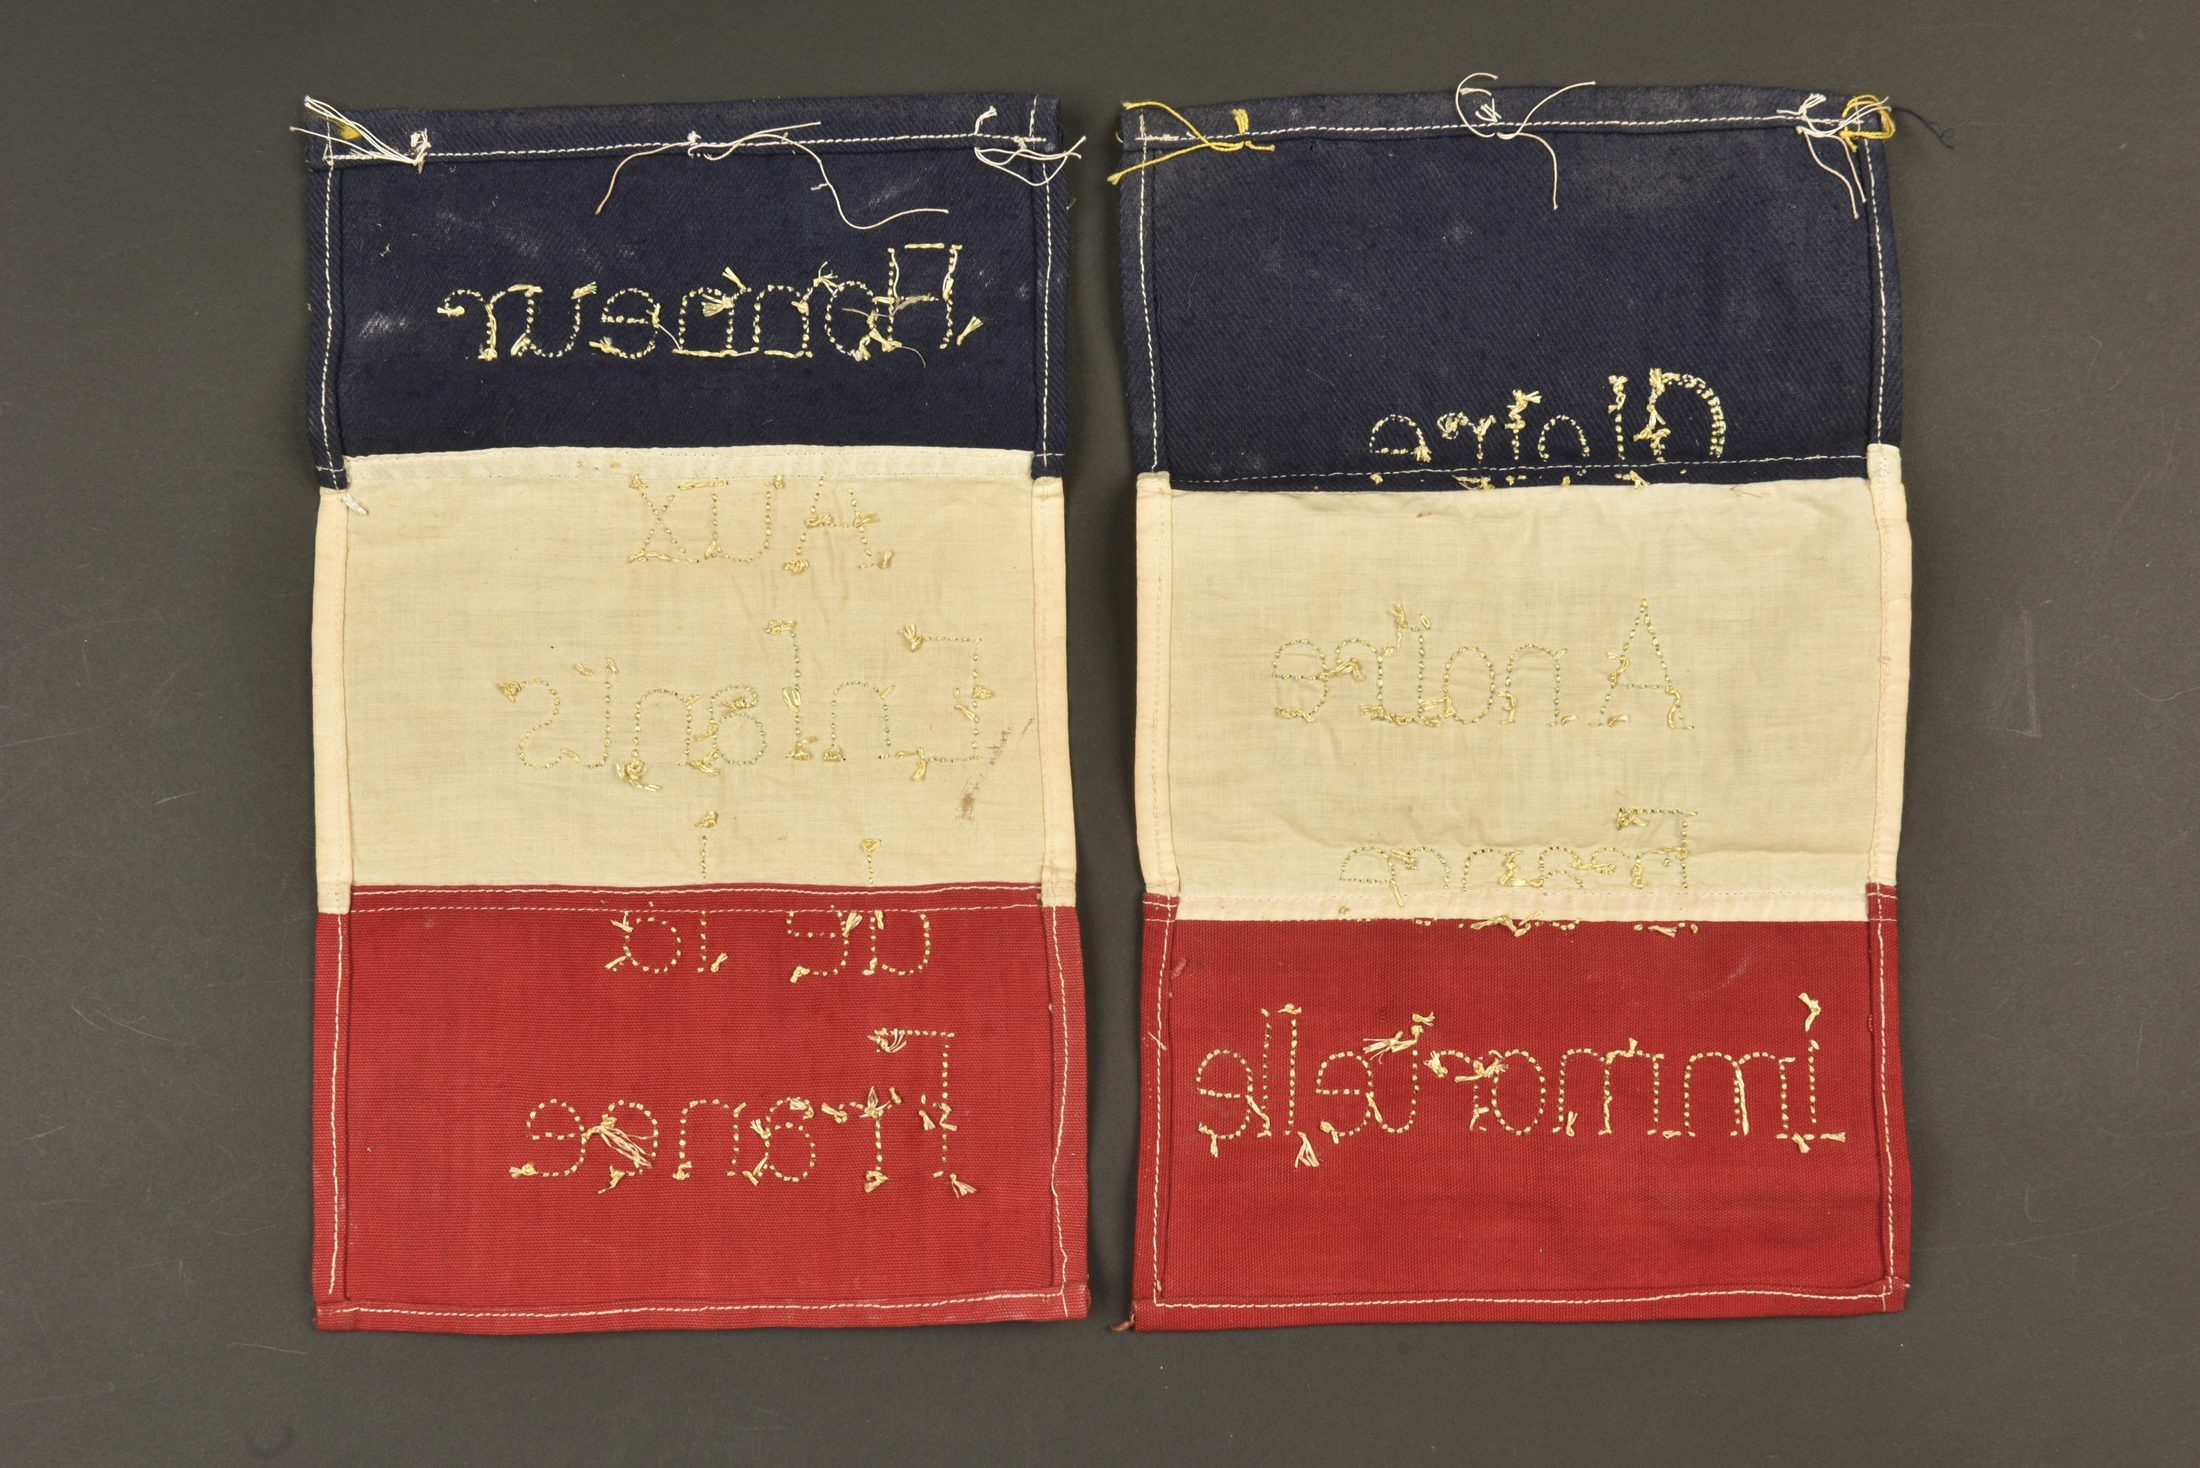 Honneur
Aux
Enfants
de la
France
Gloire
A notre
France
immortelle